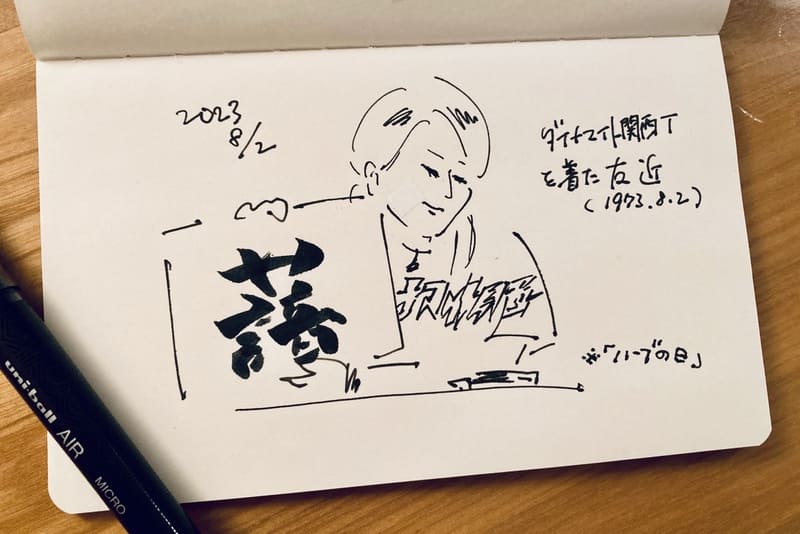 2023
8/2
ダイナマイト関西T
を着た友近
(1973.8.2)
※「ハーブの日」
uni-ball AIR MICRO